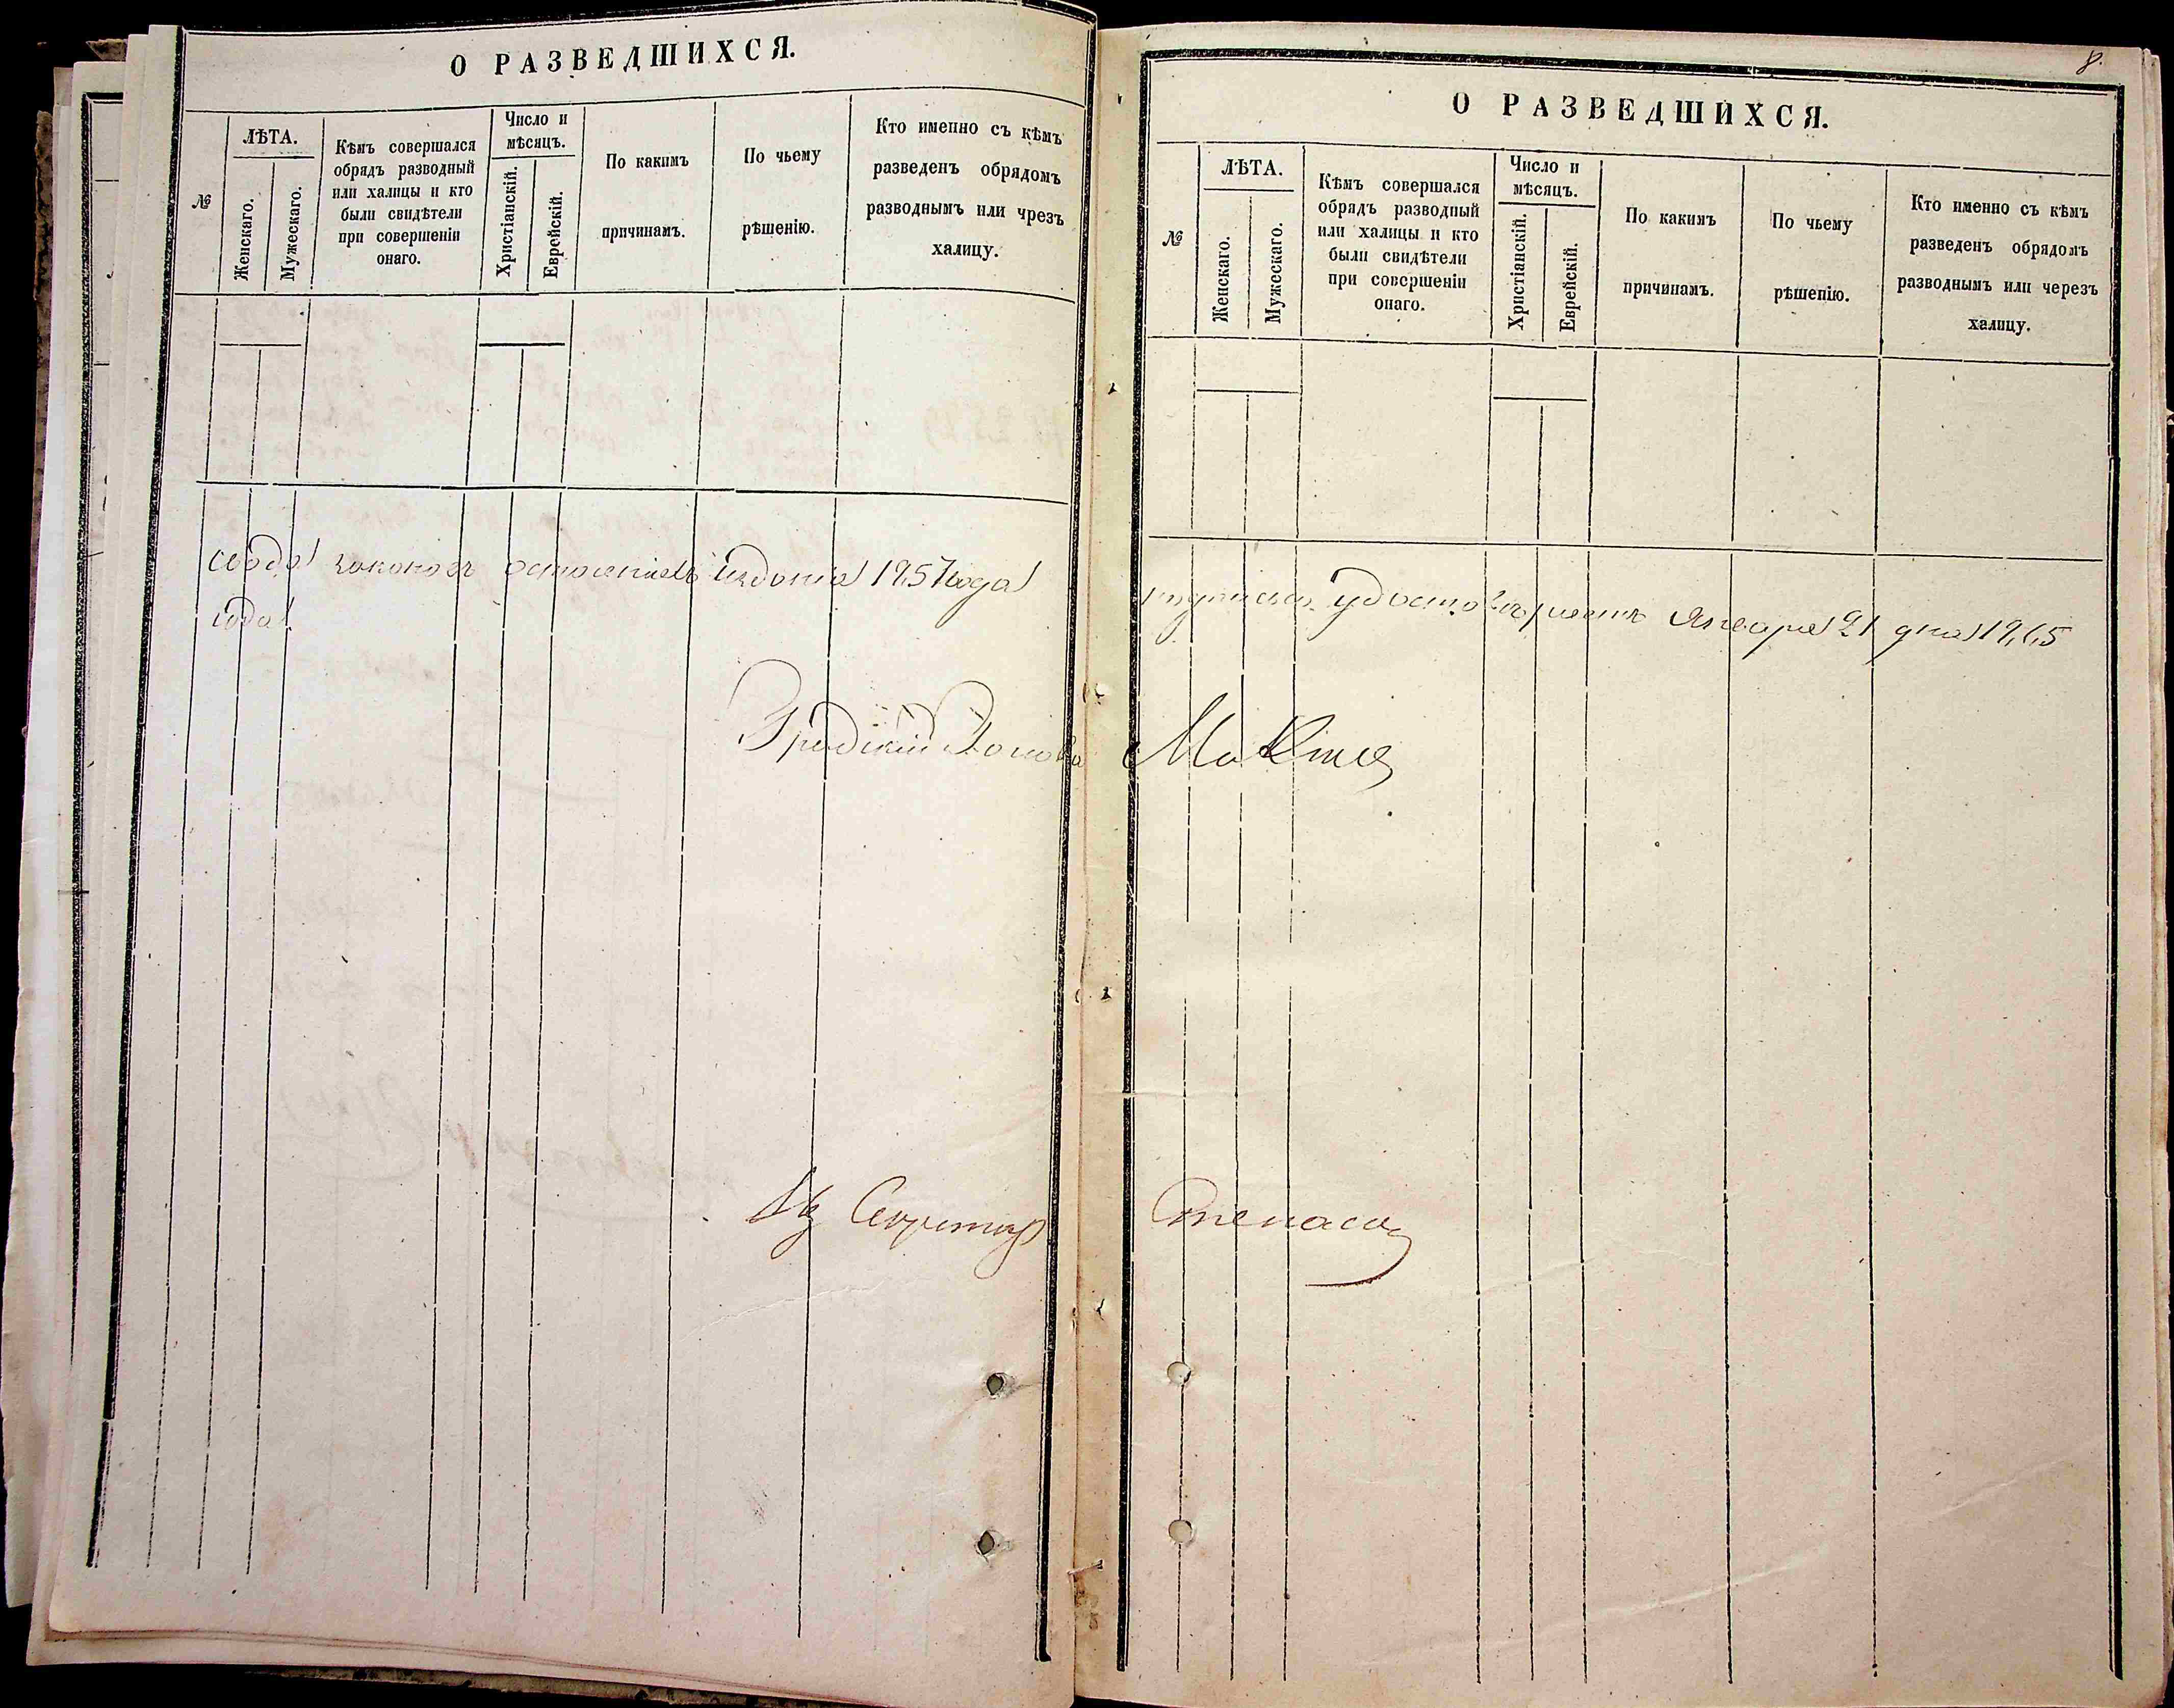 О РАЗВЕДШИХСЯ.
№
ЛѢТА.
Женскаго.
Мужескаго.
Кѣмъ совершался
обрядъ разводный
или халицы и кто
были свидѣтели
при совершеніи
онаго.
Число и
мѣсяцъ.
Христіанскій.
Еврейскій.
По какимъ
причинамъ.
По чьему
рѣшенію.
Кто именно съ кѣмъ
разведенъ обрядомъ
разводнымъ или чрезъ
халицу.
свода законовъ о состояніяхъ изданія 1857 года
года.
Градскій Голова
Секретарь
8.
О РАЗВЕДШИХСЯ.
№
ЛѢТА.
Женскаго.
Мужескаго.
Кѣмъ совершался
обрядъ разводный
или халицы и кто
были свидѣтели
при совершеніи
онаго.
Число и
мѣсяцъ.
Христіанскій.
Еврейскій.
По какимъ
причинамъ.
По чьему
рѣшенію.
Кто именно съ кѣмъ
разведенъ обрядомъ
разводнымъ или черезъ
халицу.
удостовѣряетъ Января 21 дня 1865